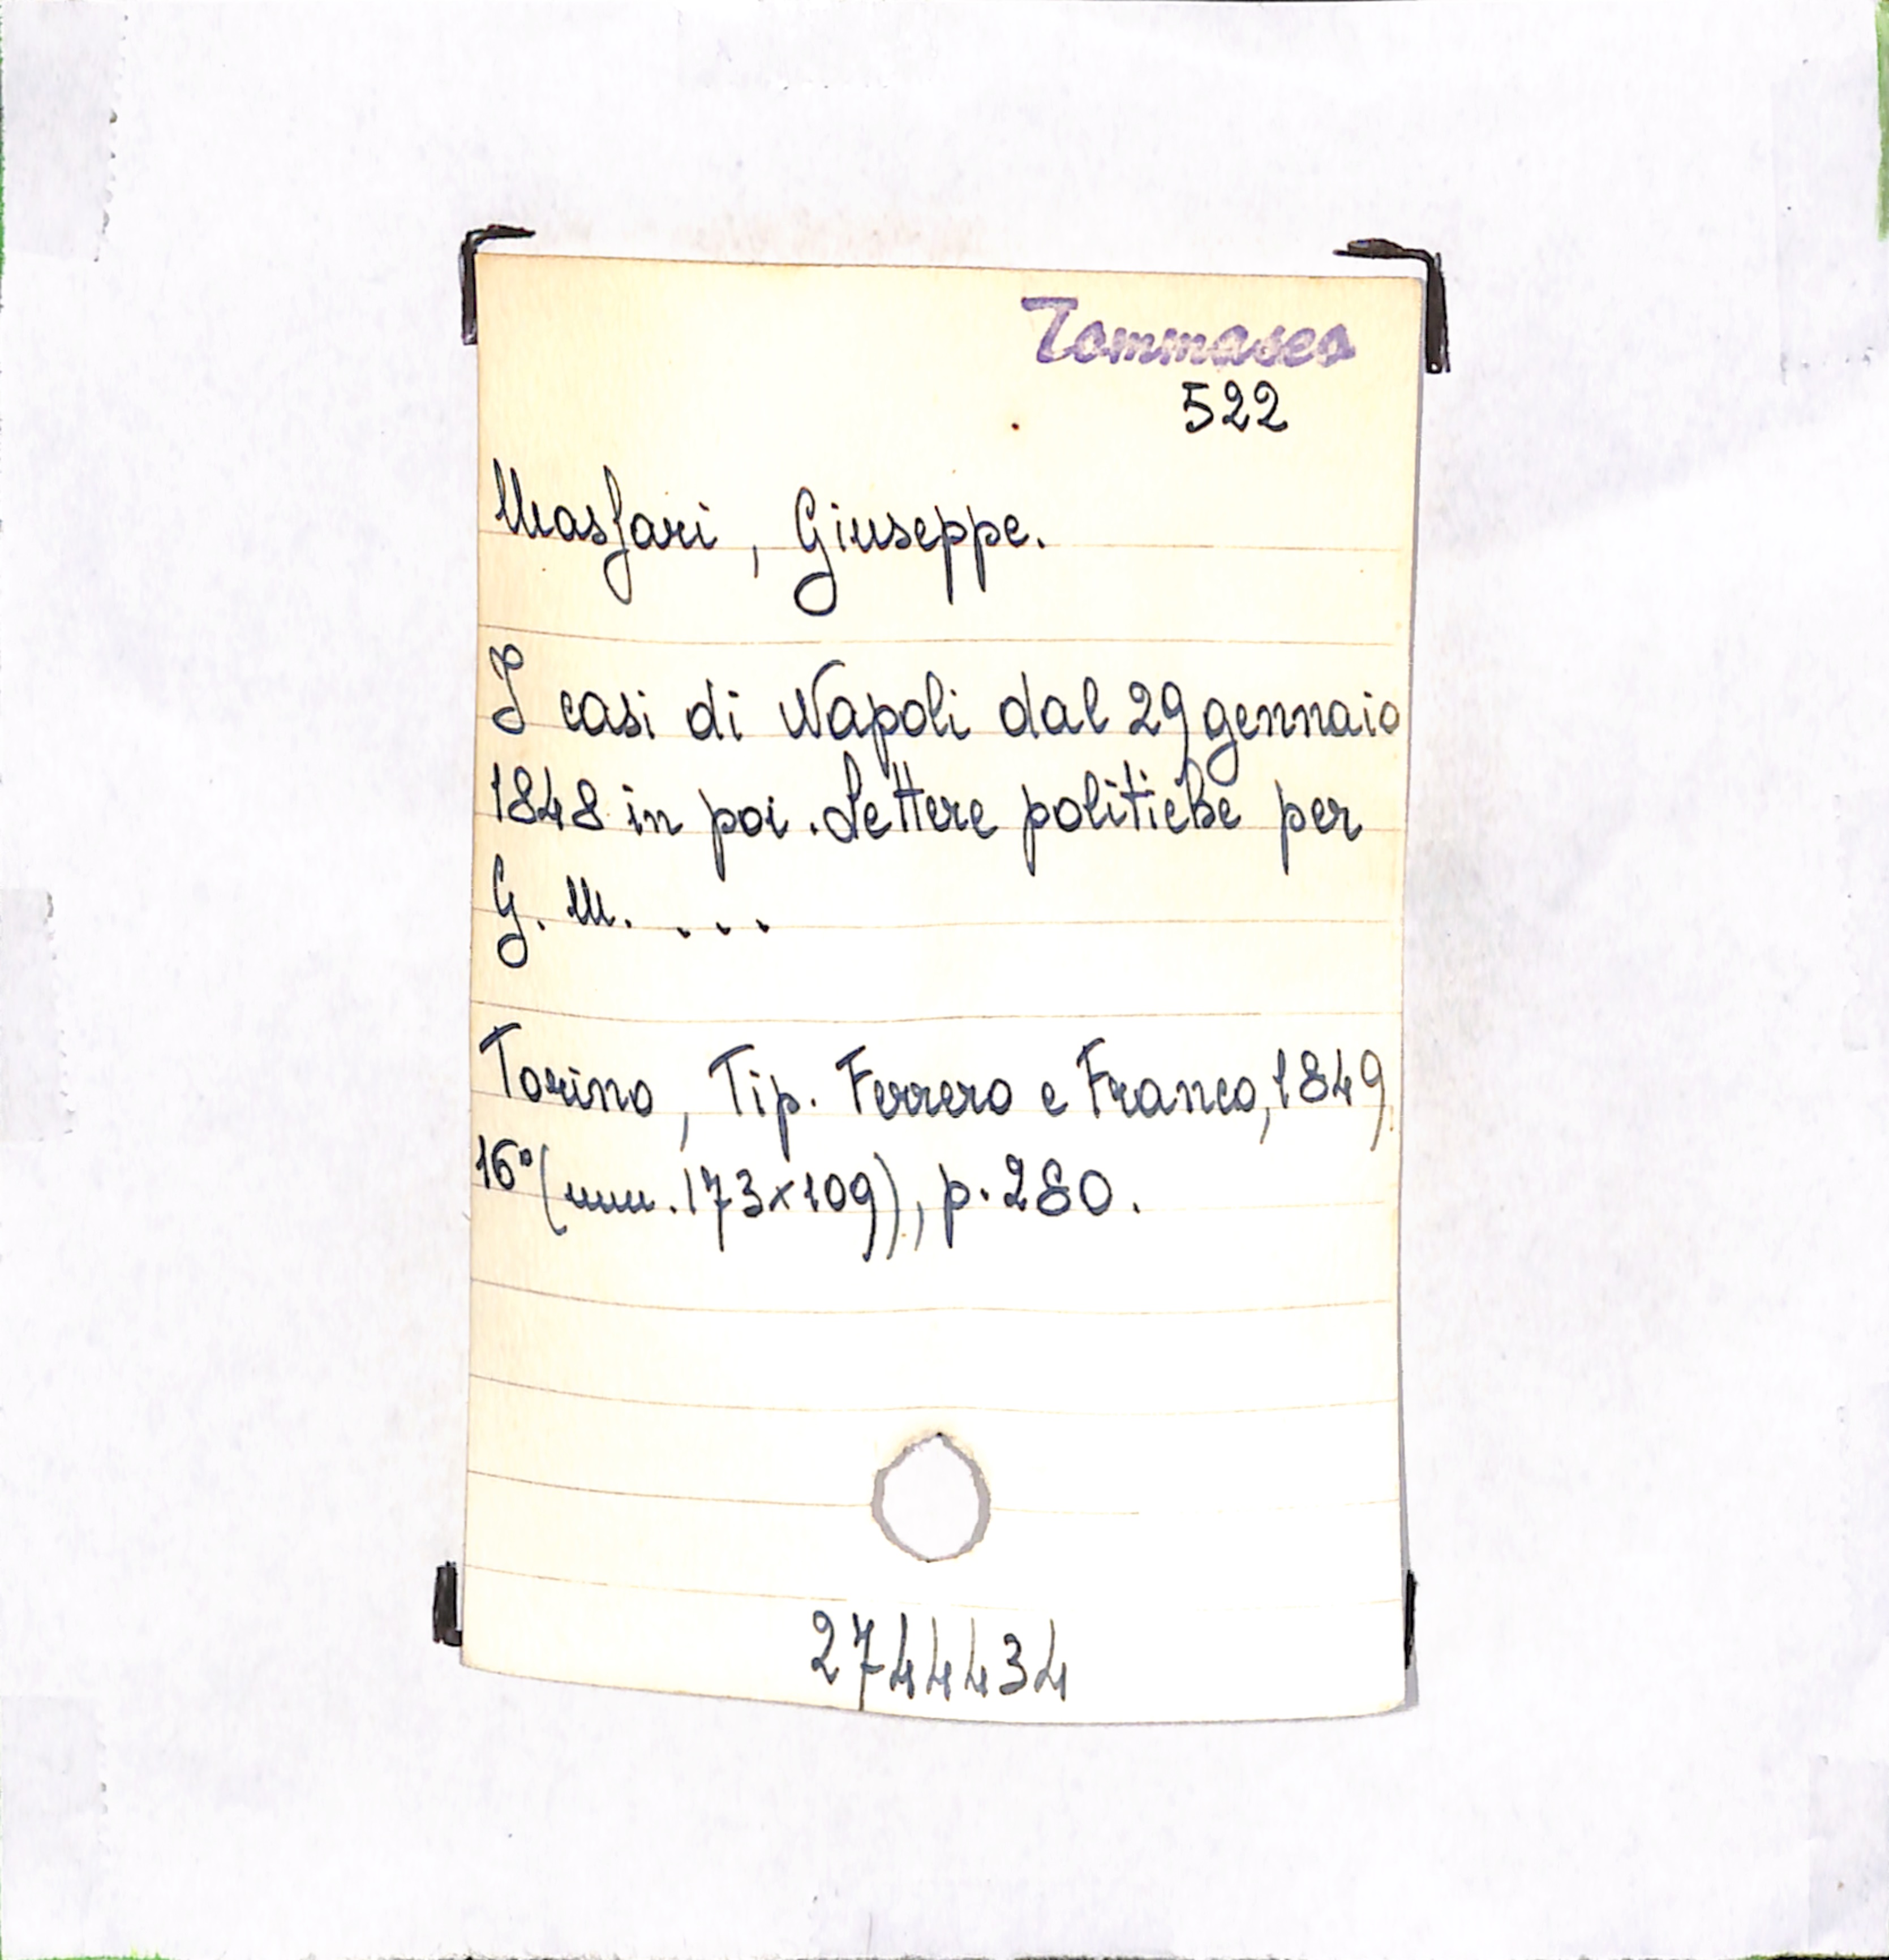 Tommaseo
522
Massari, Giuseppe.
I casi di Napoli dal 29 gennaio
1848 in poi. Lettere politiche per
G. M. ...
Torino, Tip. Ferrero e Franco, 1849
16° (mm. 173x109), p. 280.
2744434